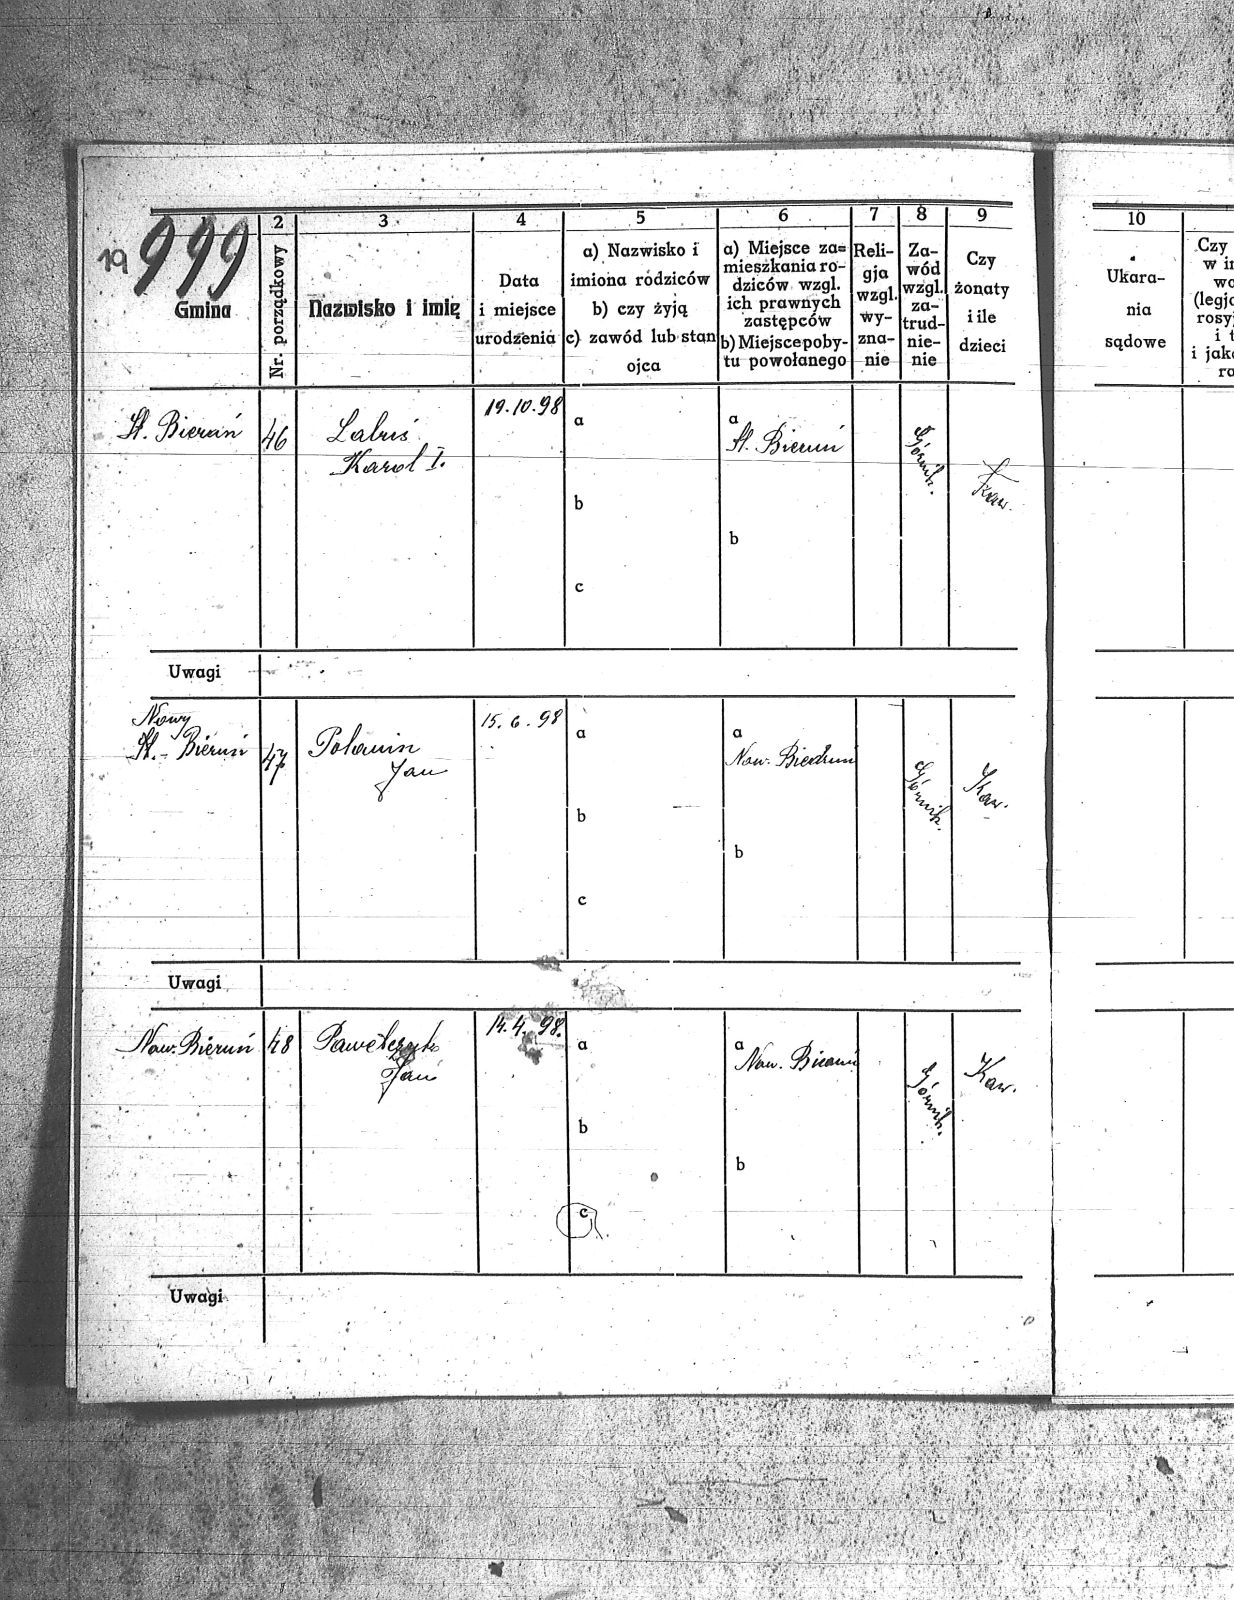 19
999
Gmina
2
Nr. porządkowy
3
Nazwisko i imię
4
Data
i miejsce
urodzenia
5
a) Nazwisko i
imiona rodziców
b) czy żyją
c) zawód lub stan
ojca
6
a) Miejsce za=
mieszkania ro-
dziców wzgl.
ich prawnych
zastępców
b) Miejsce poby-
tu powołanego
7
Reli-
gja
wzgl.
wy-
zna-
nie
8
Za-
wód
wzgl.
za-
trud-
nie-
nie
9
Czy
żonaty
i ile
dzieci
10
Ukara-
nia
sądowe
Czy
w
(legj
rosy
i
i jak
St. Bieruń
46
Labuś
Karol I.
19.10.98
a
b
c
a
St. Bieruń
b
Górnik.
Kaw.
Uwagi
Nowy
St. - Bieruń
47
Jan
15.6.98
a
b
c
a
Now. Biedruń
b
Górnik.
Kaw.
Uwagi
Now. Bieruń
48
Pawełczyk
Jan
14.4.98.
a
b
c
a
Now. Bieruń
b
Górnik.
Kaw.
Uwagi